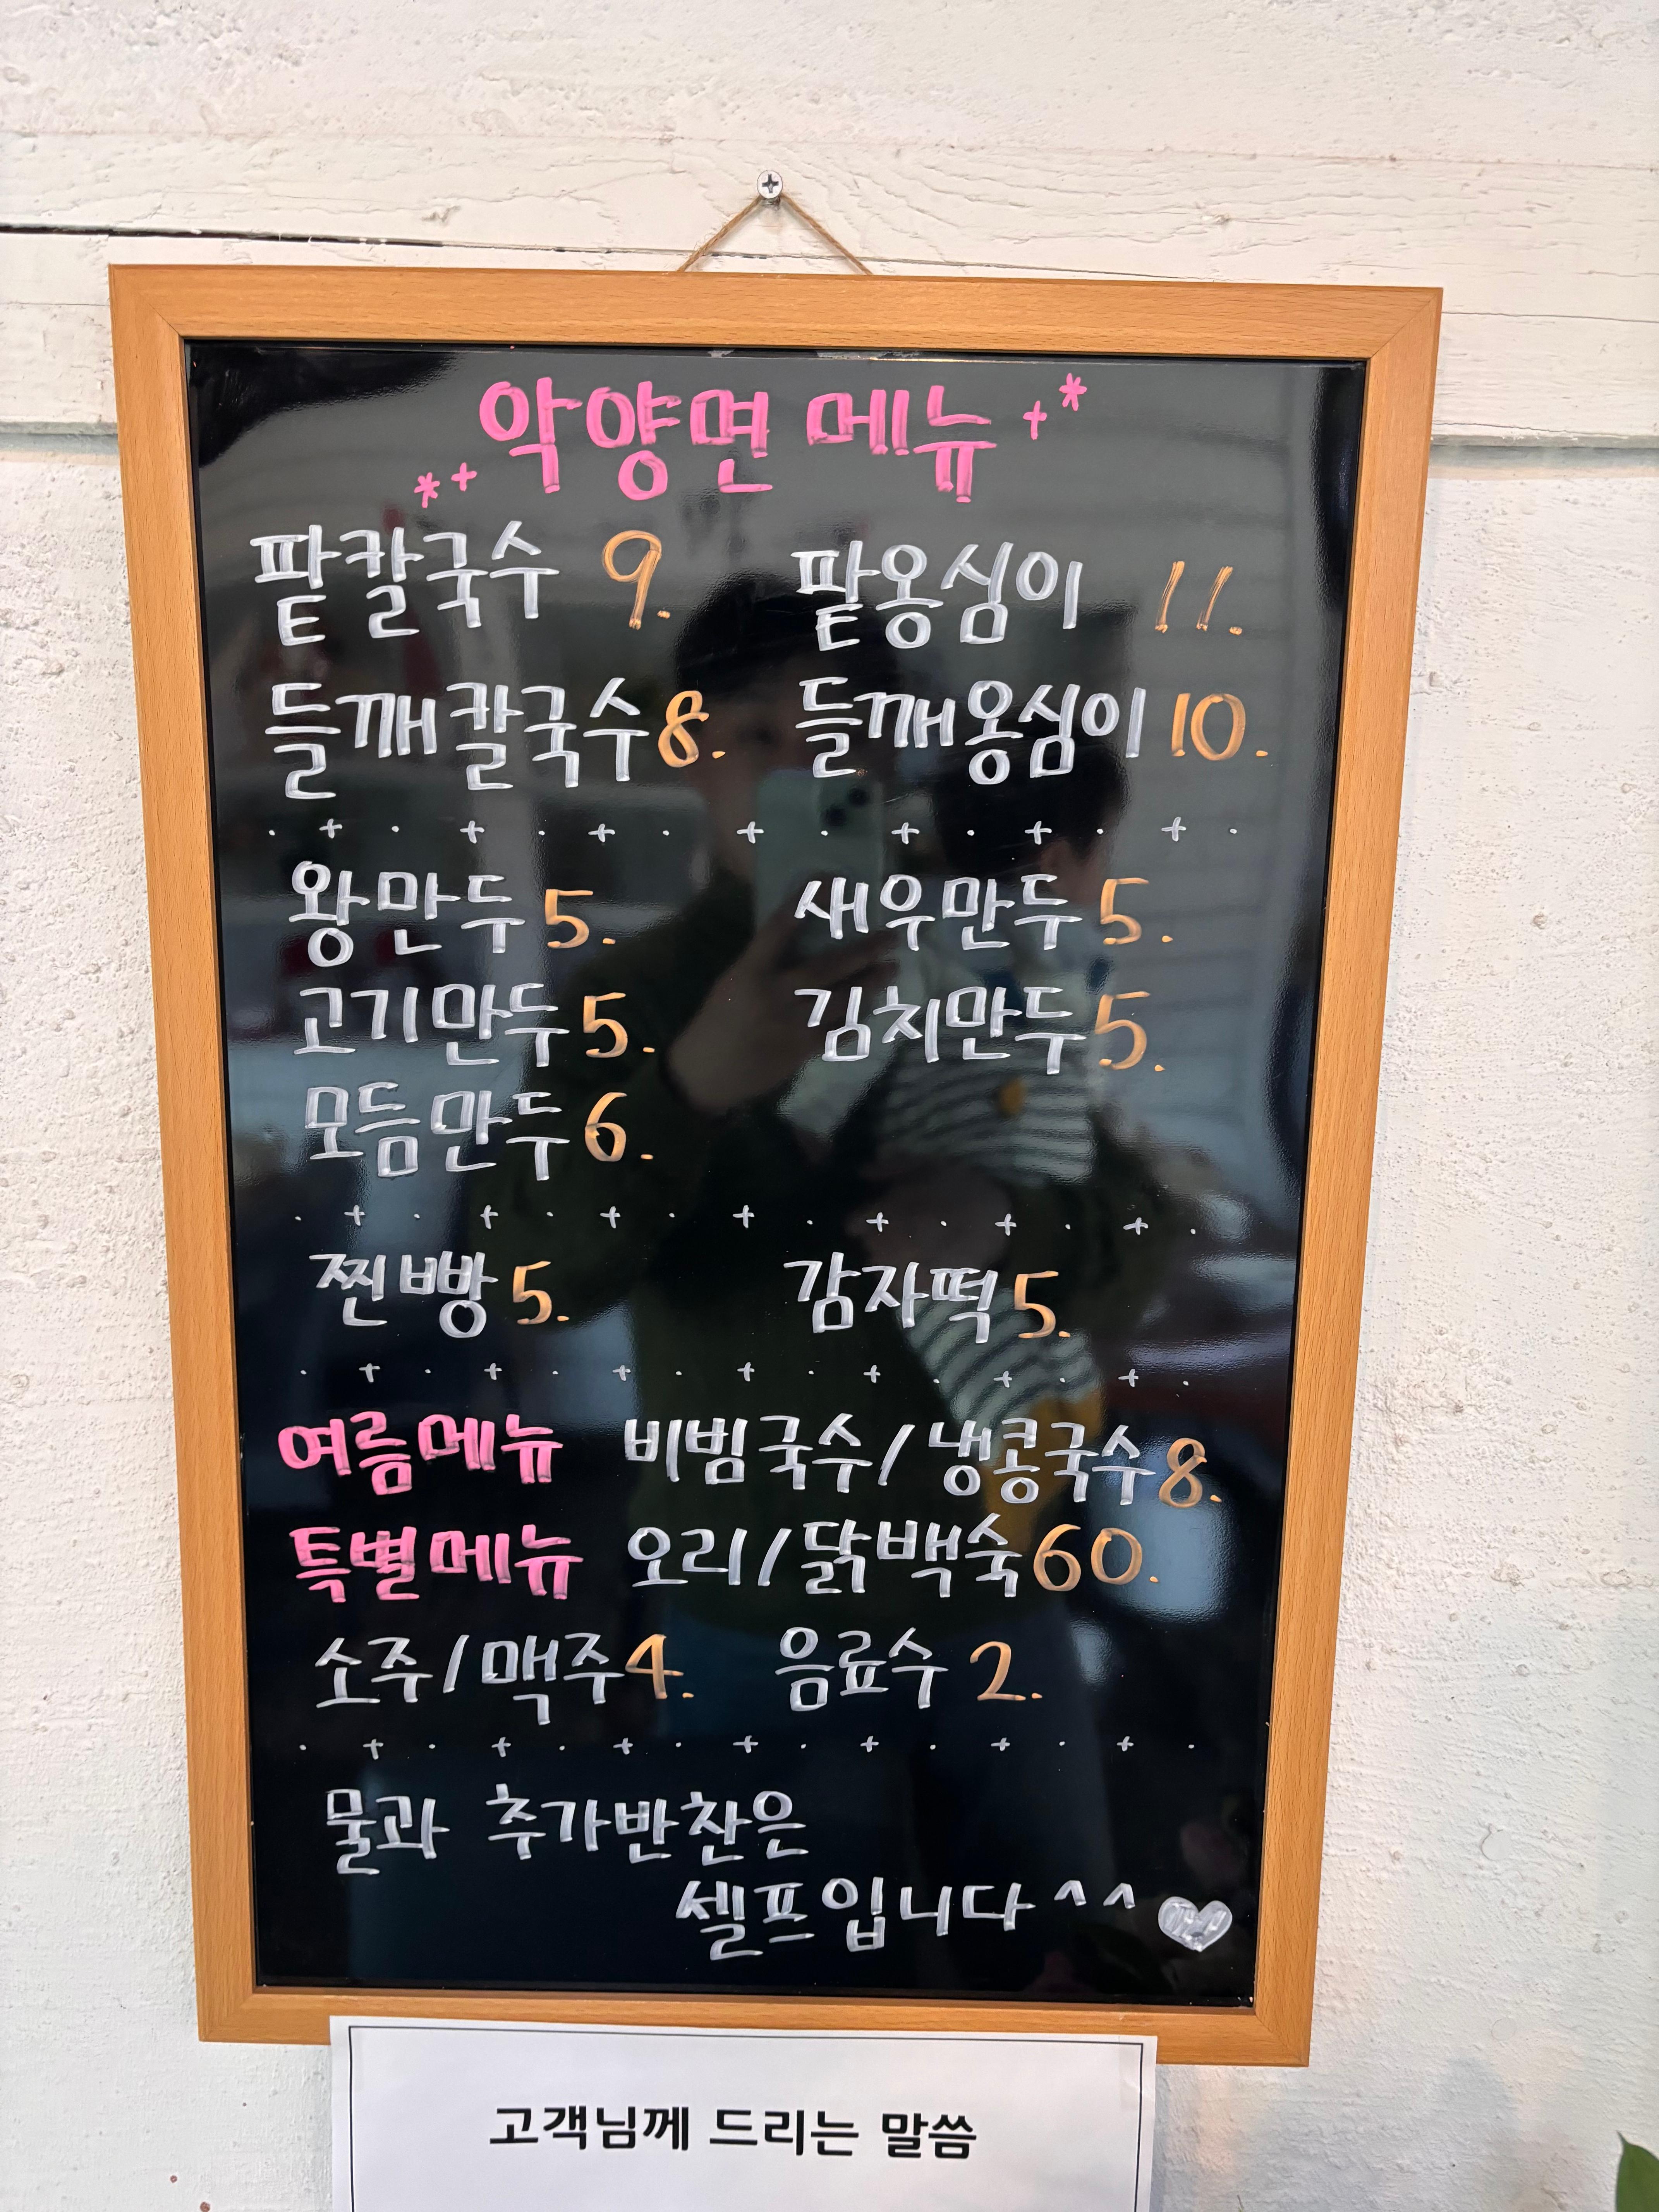 악양면 메뉴
팥칼국수 9. 팥옹심이 11.
들깨칼국수 8. 들깨옹심이 10.
왕만두 5. 새우만두 5.
고기만두 5. 김치만두 5.
모듬만두 6.
찐빵 5. 감자떡 5.
여름메뉴 비빔국수/냉콩국수 8.
특별메뉴 오리/닭백숙 60.
소주/맥주 4. 음료수 2.
물과 추가반찬은
셀프입니다^^♥
고객님께 드리는 말씀